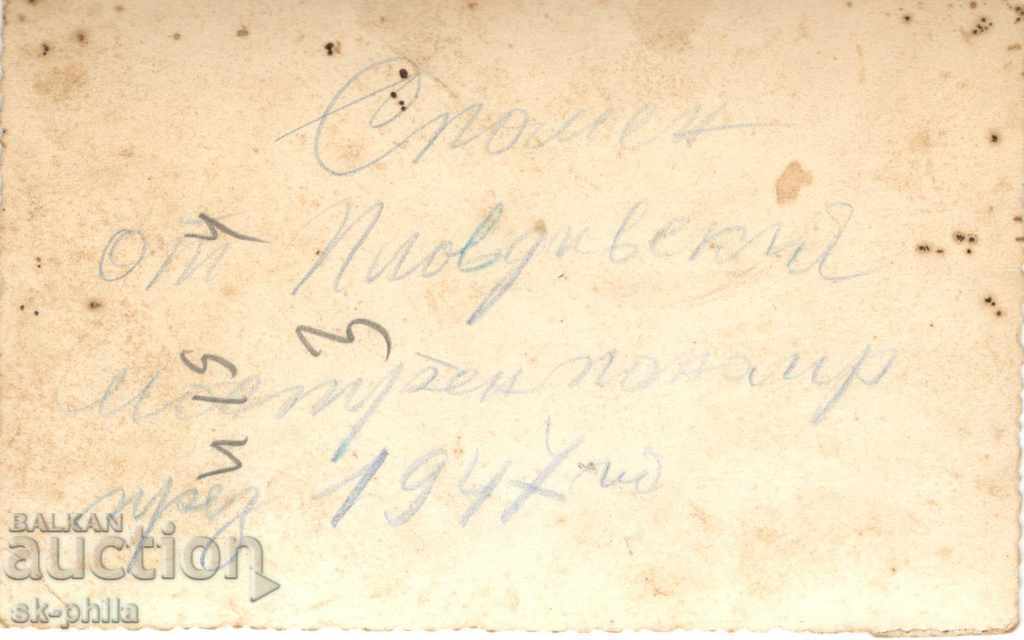 Спомен
от Пловдивский
мострен панаир
през 1947 ид
BALKAN
auction
sk-phila